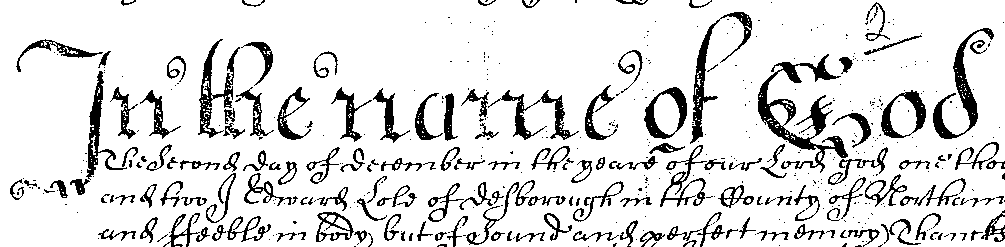 2
In the name of God
The Second day of december in the yeare of our Lord god one thou
and two I Edward Cole of desborough in the County of Northam
and ffeeble in body but of Sound and perfect memory Thancks